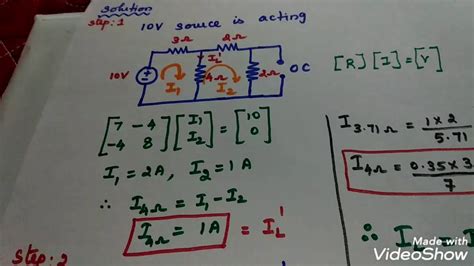 Solution
Step:1 10V source is acting
3Ω 2Ω
I'L
10V I₁ 4Ω I₂ 2Ω OC
[R][I]=[V]
[7 -4 -4 8] [I₁ I₂] = [10 0]
I₁ = 2A, I₂ = 1A
∴ I4Ω = I₁ - I₂
I4Ω = 1A = I'L
Step:2
I3.71Ω = 1×2 / 5.71
I4Ω = 0.35×3 / 7
∴ IL =
Made with
VideoShow